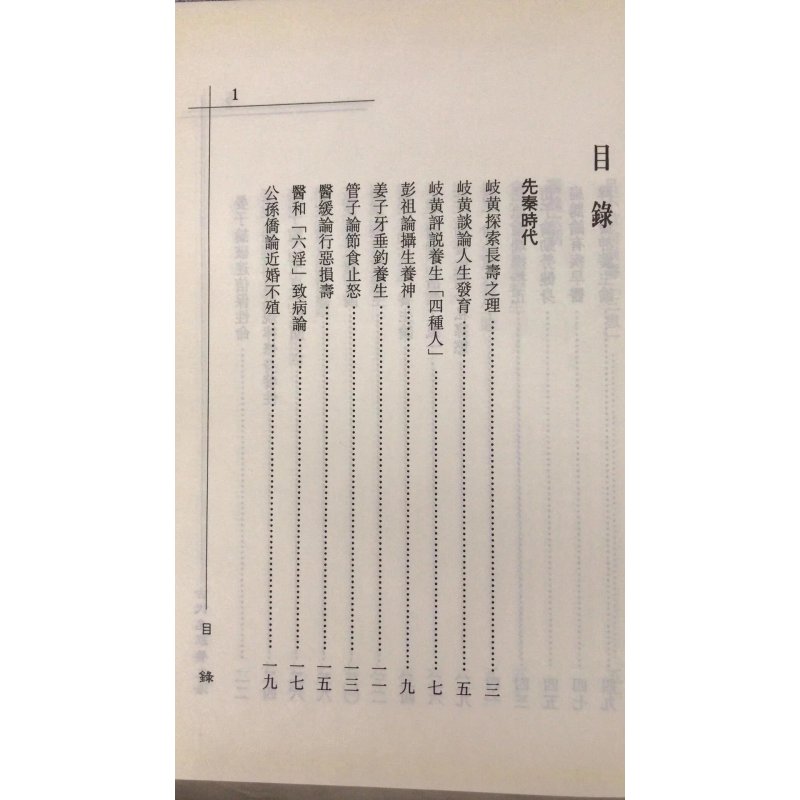 目錄
先秦時代
岐黃探索長壽之理……三
岐黃談論人生發育……五
岐黃評説養生「四種人」……七
彭祖論攝生養神……九
姜子牙垂釣養生……一一
管子論節食止怒……一三
醫緩論行惡損壽……一五
醫和「六淫」致病論……一七
公孫僑論近婚不殖……一九
1
目錄